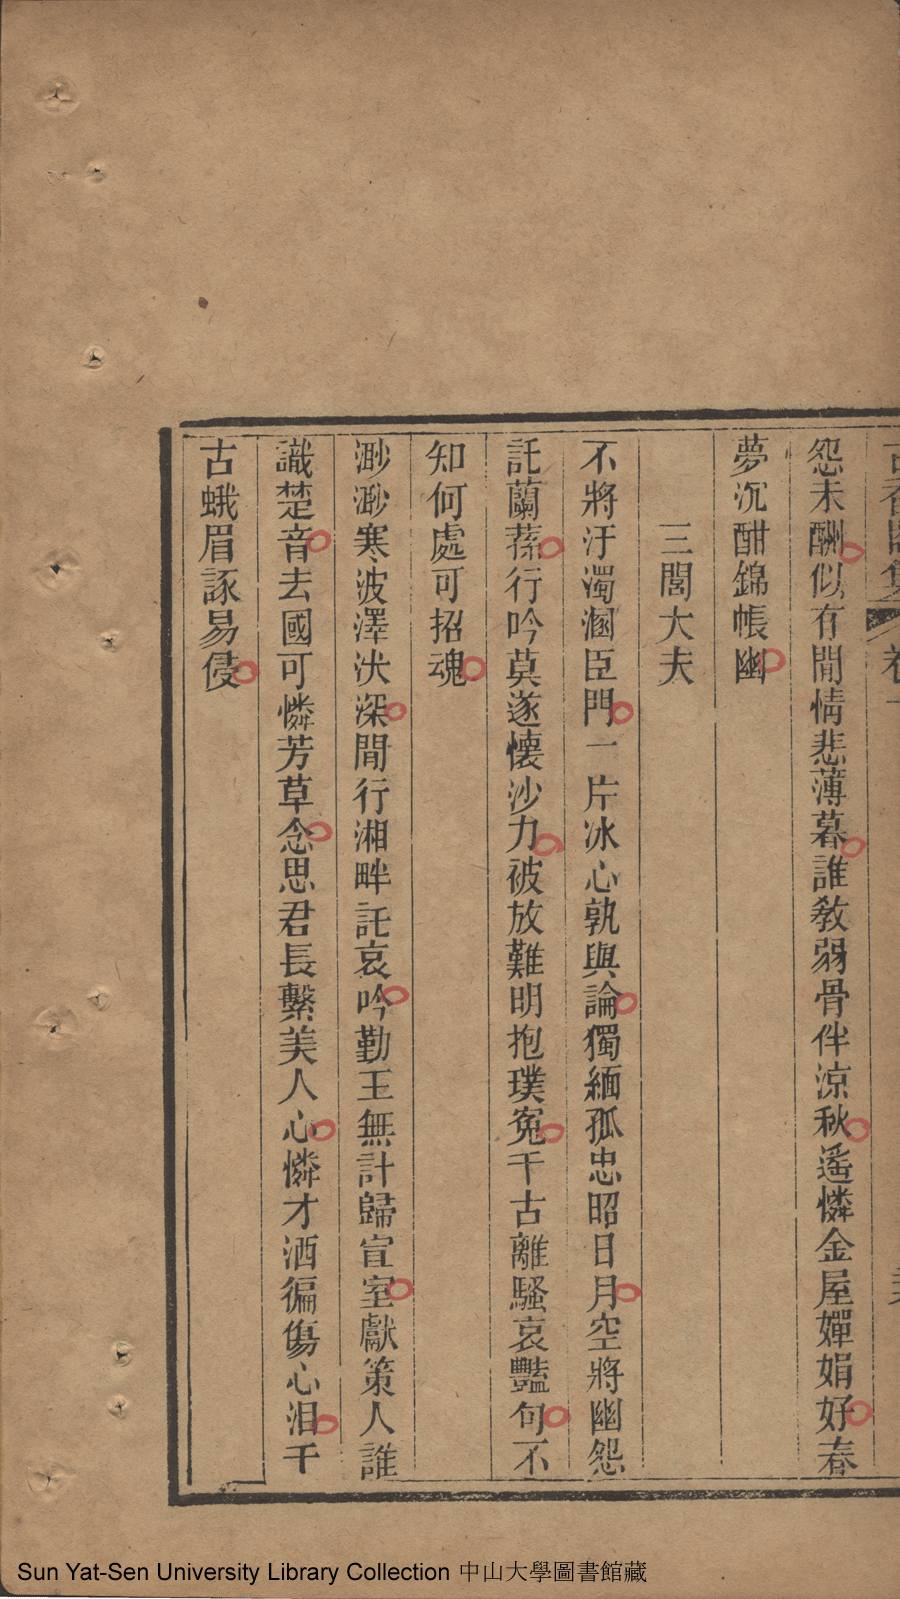 怨未酬似有閒情悲薄暮誰教弱骨伴涼秋遙憐金屋嬋娟好春
夢沉酣錦帳幽
三閭大夫
不將汙濁溷臣門一片冰心孰與論獨緬孤忠昭日月空將幽怨
託蘭蓀行吟莫遂懷沙力被放難明抱璞冤千古離騷哀豔句不
知何處可招魂
渺渺寒波澤泬深閒行湘畔託哀吟勤王無計歸宣室獻策人誰
識楚音去國可憐芳草念思君長繫美人心憐才洒徧傷心泪千
古蛾眉諑易侵
Sun Yat-Sen University Library Collection 中山大學圖書館藏